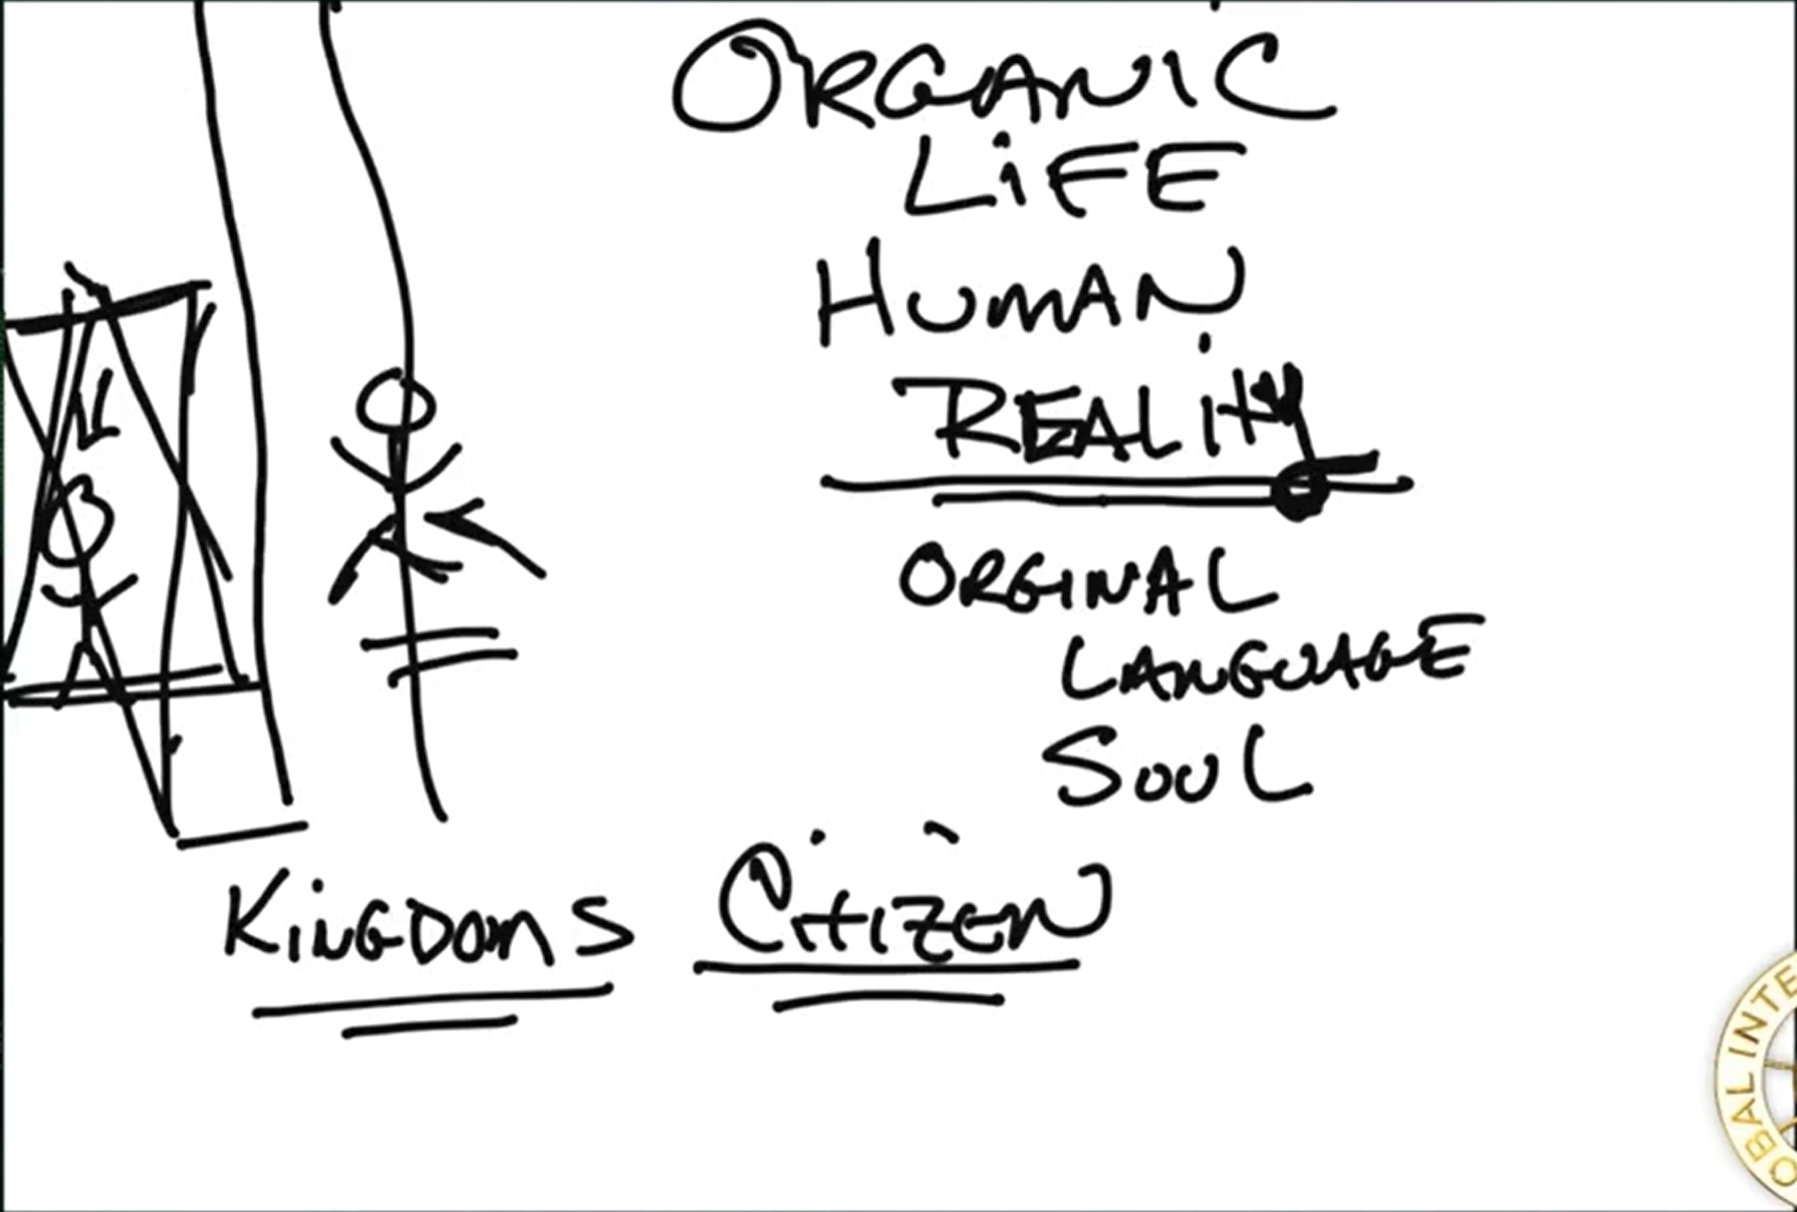 ORGANIC
LiFE
HUMAN
REALITY
ORGINAL
LANGUAGE
SOUL
KiNGDOMS CITIZEN
OBAL INTE